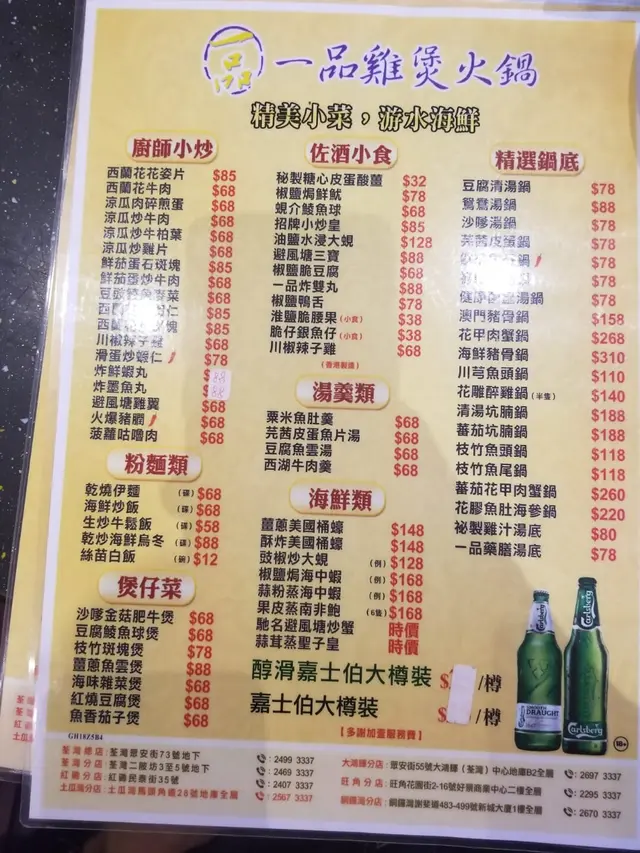 一品
一品雞煲火鍋
精美小菜,游水海鮮
廚師小炒
西蘭花花姿片 $85
西蘭花牛肉 $68
涼瓜肉碎煎蛋 $68
涼瓜炒牛肉 $68
涼瓜炒牛柏葉 $68
涼瓜炒雞片 $68
鮮茄蛋石斑塊 $85
鮮茄蛋炒牛肉 $68
$68
$85
$85
川椒辣子雞 $68
滑蛋炒蝦仁 $78
炸鮮蝦丸 $88
炸墨魚丸 $88
避風塘雞翼 $68
火爆豬膶 $68
菠蘿咕嚕肉 $68
粉麵類
乾燒伊麵 (碟) $68
海鮮炒飯 (碟) $68
生炒牛鬆飯 (碟) $58
乾炒海鮮烏冬 (碟) $88
絲苗白飯 (碗) $12
煲仔菜
沙嗲金菇肥牛煲 $68
豆腐鯪魚球煲 $68
枝竹斑塊煲 $78
薑蔥魚雲煲 $88
海味雜菜煲 $68
紅燒豆腐煲 $68
魚香茄子煲 $68
GH18Z5B4
佐酒小食
秘製糖心皮蛋酸薑 $32
椒鹽焗鮮魷 $78
蜆介鯪魚球 $68
招牌小炒皇 $85
油鹽水浸大蜆 $128
避風塘三寶 $88
椒鹽脆豆腐 $68
一品炸雙丸 $88
椒鹽鴨舌 $78
淮鹽脆腰果 (小食) $38
脆仔銀魚仔 (小食) $38
川椒辣子雞 $68
(香港製造)
湯羹類
粟米魚肚羹 $68
芫茜皮蛋魚片湯 $68
豆腐魚雲湯 $68
西湖牛肉羹 $68
海鮮類
薑蔥美國桶蠔 $148
酥炸美國桶蠔 $148
豉椒炒大蜆 (例) $128
椒鹽焗海中蝦 (例) $168
蒜粉蒸海中蝦 (例) $168
果皮蒸南非鮑 (6隻) $168
馳名避風塘炒蟹 時價
蒜茸蒸聖子皇 時價
精選鍋底
豆腐清湯鍋 $78
鴛鴦湯鍋 $88
沙嗲湯鍋 $78
芫茜皮蛋鍋 $78
$78
$78
$78
澳門豬骨鍋 $158
花甲肉蟹鍋 $268
海鮮豬骨鍋 $310
川芎魚頭鍋 $110
花雕醉雞鍋 (半隻) $140
清湯坑腩鍋 $188
蕃茄坑腩鍋 $188
枝竹魚頭鍋 $118
枝竹魚尾鍋 $118
蕃茄花甲肉蟹鍋 $260
花膠魚肚海參鍋 $220
祕製雞汁湯底 $80
一品藥膳湯底 $78
醇滑嘉士伯大樽裝 $ /樽
嘉士伯大樽裝 $ /樽
【多謝加壹服務費】
Carlsberg
DRAUGHT
Carlsberg
Carlsberg
18+
荃灣總店:荃灣眾安街73號地下 : 2499 3337
荃灣分店:荃灣二陂坊3至5號地下 : 2469 3337
紅磡分店:紅磡民泰街35號 : 2407 3337
土瓜灣分店:土瓜灣馬頭角道28號地庫全層 : 2567 3337
大鴻輝分店:眾安街55號大鴻輝(荃灣)中心地庫B2全層 : 2697 3337
旺角分店:旺角花園街2-16號好景商業中心二樓全層 : 2295 3337
銅鑼灣分店:銅鑼灣謝斐道483-499號新城大廈1樓全層 : 2670 3337